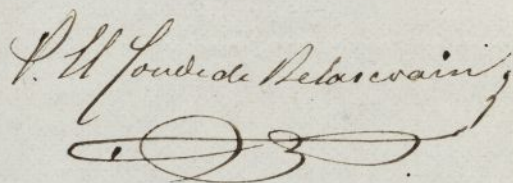 P. El Conde de Belascoain